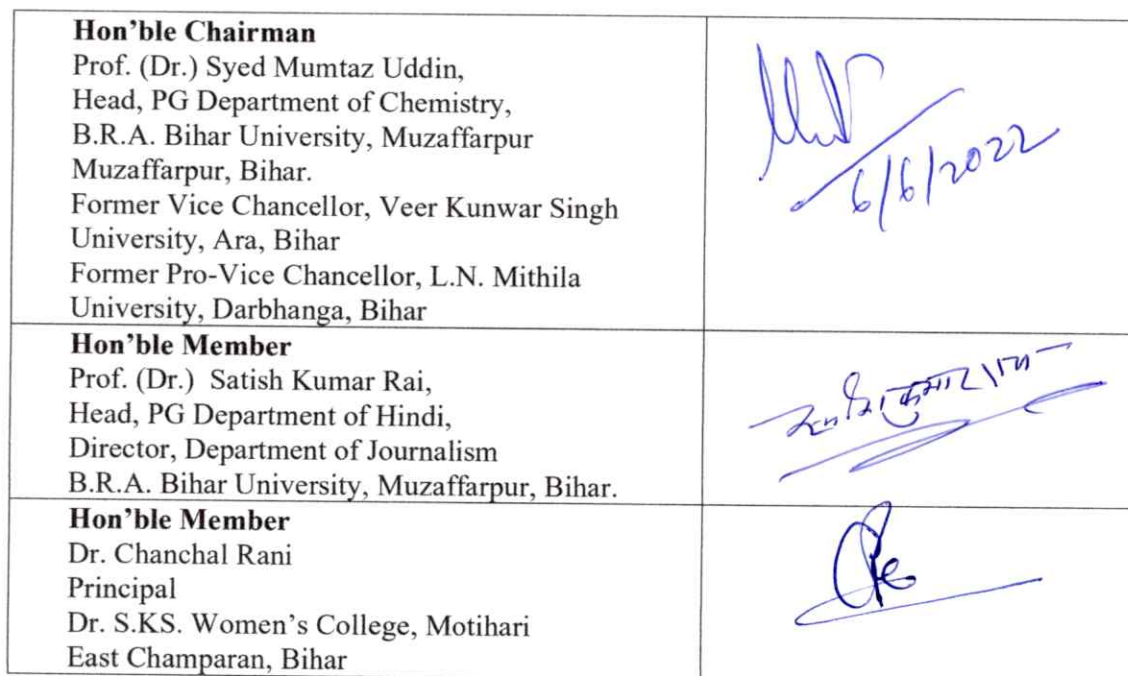 Hon'ble Chairman
Prof. (Dr.) Syed Mumtaz Uddin,
Head, PG Department of Chemistry,
B.R.A. Bihar University, Muzaffarpur
Muzaffarpur, Bihar.
Former Vice Chancellor, Veer Kunwar Singh
University, Ara, Bihar
Former Pro-Vice Chancellor, L.N. Mithila
University, Darbhanga, Bihar
6/6/2022
Hon'ble Member
Prof. (Dr.) Satish Kumar Rai,
Head, PG Department of Hindi,
Director, Department of Journalism
B.R.A. Bihar University, Muzaffarpur, Bihar.
कुमार
Hon'ble Member
Dr. Chanchal Rani
Principal
Dr. S.KS. Women's College, Motihari
East Champaran, Bihar